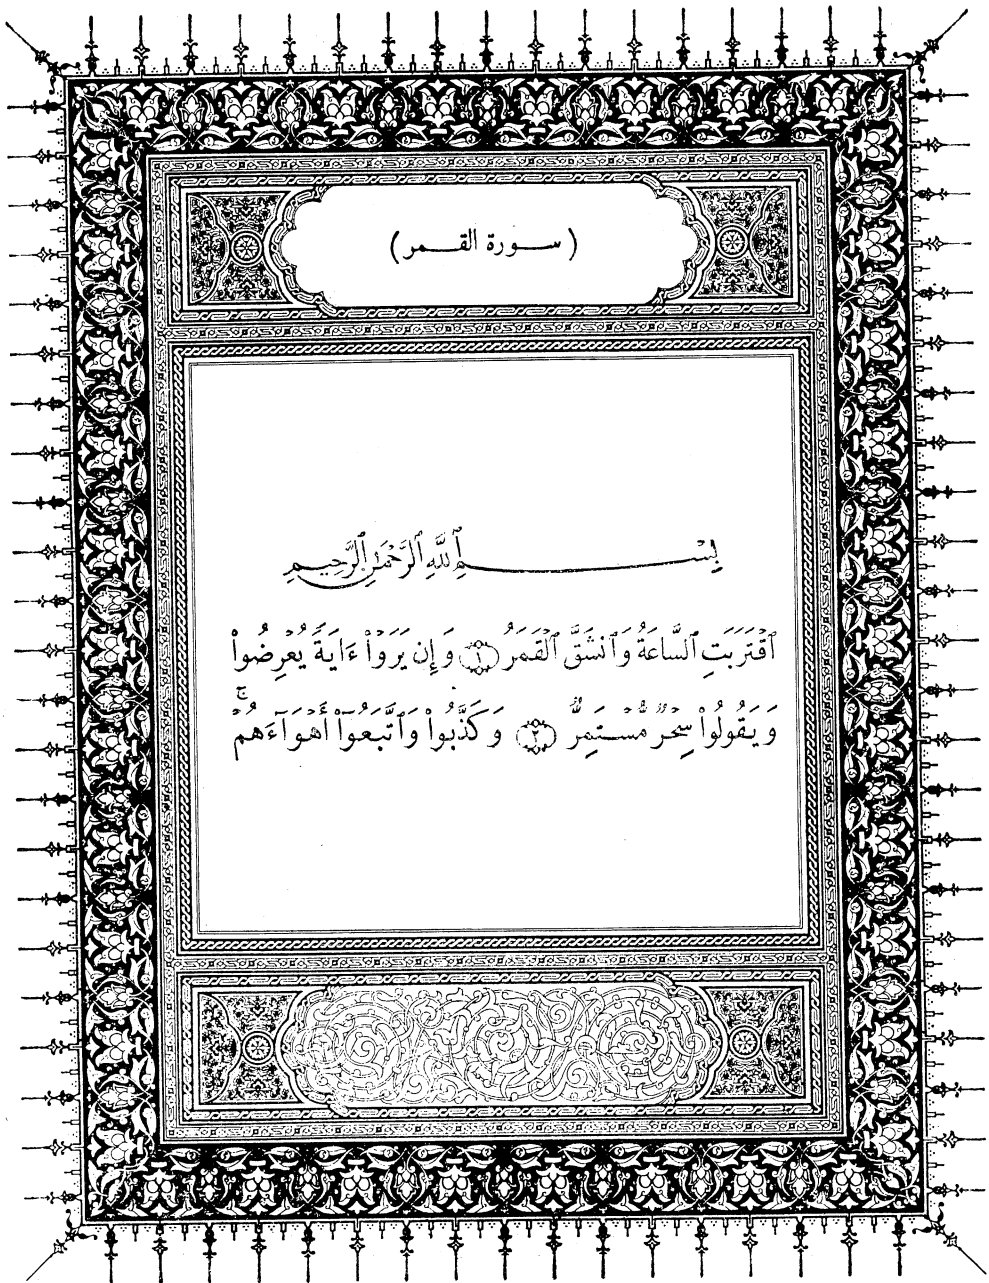 (سورة القمر)
بِسْمِ ٱللَّهِ ٱلرَّحْمَٰنِ ٱلرَّحِيمِ
ٱقْتَرَبَتِ ٱلسَّاعَةُ وَٱنشَقَّ ٱلْقَمَرُ ﴿١﴾ وَإِن يَرَوْا۟ ءَايَةً يُعْرِضُوا۟
وَيَقُولُوا۟ سِحْرٌ مُّسْتَمِرٌّ ﴿٢﴾ وَكَذَّبُوا۟ وَٱتَّبَعُوٓا۟ أَهْوَآءَهُمْ ۚ